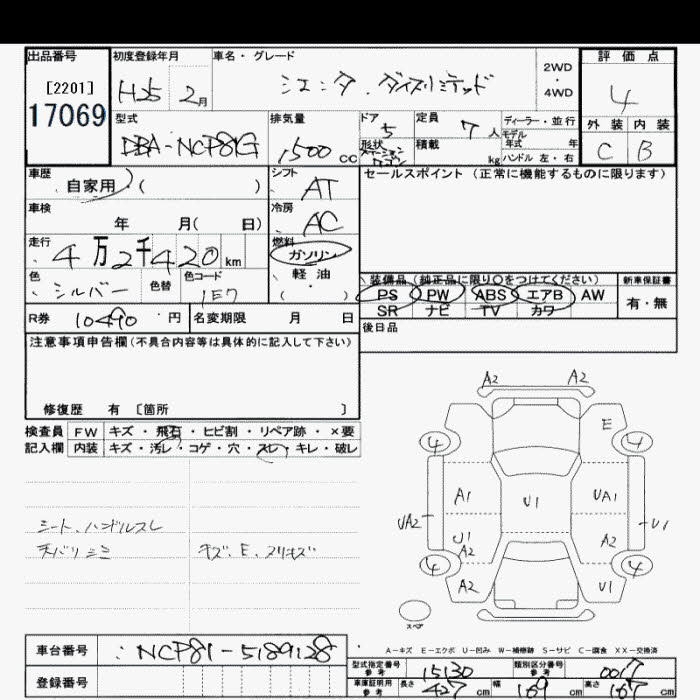 出品番号 初度登録年月 車名・グレード 評価点
[2201] H25 2月 シエンタ・ダイスリミテッド 2WD・4WD 4
17069 外装 内装
型式 排気量 ドア 定員 ディーラー・並行
DBA-NCP81G 1500cc 5 7人 モデル年式 年 C B
形状 ステーションワゴン 積載 kg ハンドル 左・右
車歴 シフト セールスポイント (正常に機能するものに限ります)
自家用 ( ) AT
車検 冷房
年 月( 日) AC
走行 燃料
4万2千420km ガソリン
色 色替 色コード 軽油・
シルバー 1E7 ( )
装備品 (純正品に限り○をつけてください) 新車保証書
PS PW ABS エアB AW 有・無
SR ナビ TV カワ
R券 10490円 名変期限 月 日
後日品
注意事項申告欄(不具合内容等は具体的に記入して下さい)
修復歴 有 〔箇所 〕
検査員 FW キズ・飛石・ヒビ割・リペア跡・×要
記入欄 内装 キズ・汚レ・コゲ・穴・スレ・キレ・破レ
シート、ハンドルスレ
チバリ ミミ キズ、E、スリキズ
A2 A2
E
4 4
A1 U1 UA1
UA2 U1
U1 A2 A2
4 4
A2 U1
スペア
A-キズ E-エクボ U-凹み W-補修跡 S-サビ C-腐食 XX-交換済
車台番号 NCP81-5189128
型式指定番号 参考 15130 類別区分番号 参考 0017
登録番号
車庫証明用 参考 長さ 427cm 幅 169cm 高さ 167cm